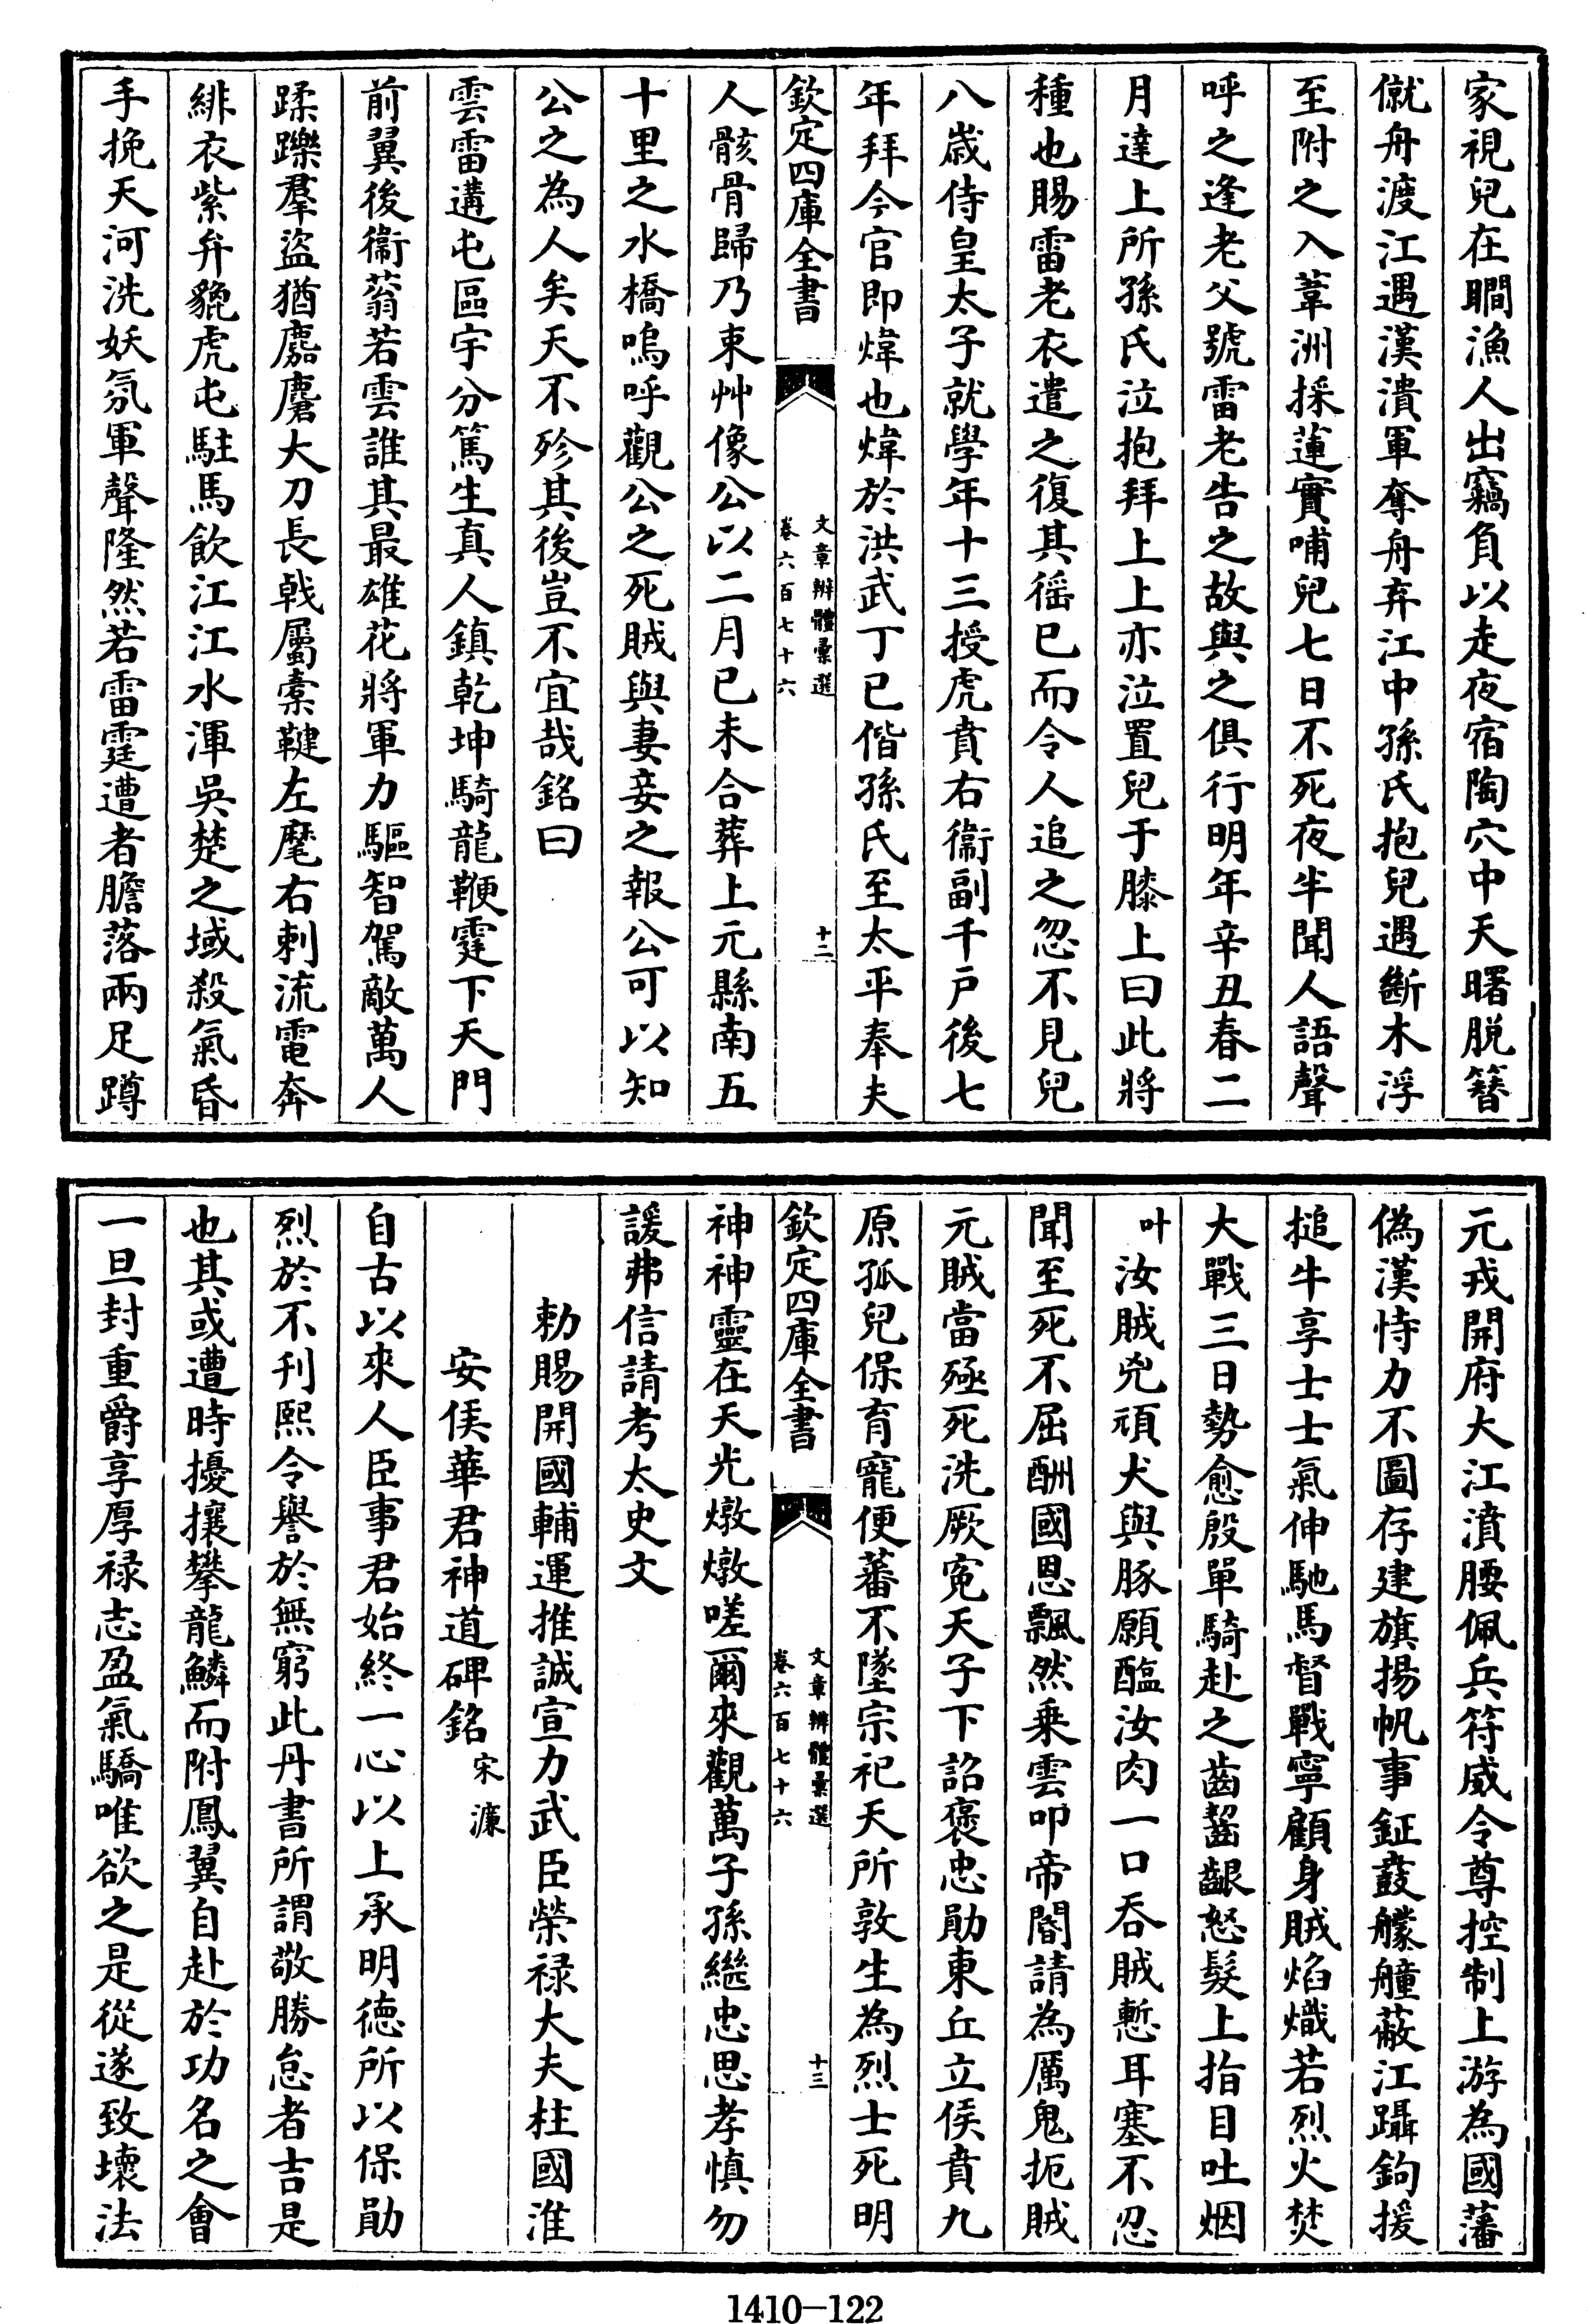 家視兒在瞷漁人出竊負以走夜宿陶穴中天曙脱簪
僦舟渡江遇漢潰軍奪舟弃江中孫氏抱兒遇斷木浮
至附之入葦洲採蓮實哺兒七日不死夜半聞人語聲
呼之逢老父號雷老告之故與之俱行明年辛丑春二
月達上所孫氏泣抱拜上上亦泣置兒于膝上曰此將
種也賜雷老衣遣之復其徭已而令人追之忽不見兒
八歲侍皇太子就學年十三授虎賁右衞副千戸後七
年拜今官即煒也煒於洪武丁巳偕孫氏至太平奉夫
欽定四庫全書
文章辨體彙選
卷六百七十六
十二
人骸骨歸乃束艸像公以二月已未合葬上元縣南五
十里之水橋嗚呼觀公之死賊與妻妾之報公可以知
公之為人矣天不殄其後豈不宜哉銘曰
雲雷遘屯區宇分篤生真人鎮乾坤騎龍鞭霆下天門
前翼後衞蓊若雲誰其最雄花將軍力驅智駕敵萬人
蹂躒羣盜猶麆麏大刀長戟屬櫜鞬左麾右刺流電奔
緋衣紫弁貔虎屯駐馬飲江江水渾吳楚之域殺氣昏
手挽天河洗妖氛軍聲隆然若雷霆遭者膽落兩足蹲
元戎開府大江濆腰佩兵符威令尊控制上游為國藩
偽漢恃力不圖存建旗揚帆事鉦鼓艨艟蔽江躡鉤援
搥牛享士士氣伸馳馬督戰寧顧身賊焰熾若烈火焚
大戰三日勢愈殷單騎赴之齒齧齦怒髮上指目吐烟
叶汝賊兇頑犬與豚願醢汝肉一口吞賊慙耳塞不忍
聞至死不屈酬國恩飄然乗雲叩帝閽請為厲鬼扼賊
元賊當殛死洗厥寃天子下詔褒忠勛東丘立侯賁九
原孤兒保育寵便蕃不墜宗祀天所敦生為烈士死明
欽定四庫全書
文章辨體彙選
卷六百七十六
十三
神神靈在天光燉燉嗟爾來觀萬子孫繼忠思孝慎勿
諼弗信請考太史文
勅賜開國輔運推誠宣力武臣榮禄大夫柱國淮
安侯華君神道碑銘宋濂
自古以來人臣事君始終一心以上承明徳所以保勛
烈於不刋熙令譽於無窮此丹書所謂敬勝怠者吉是
也其或遭時擾攘攀龍鱗而附鳳翼自赴於功名之會
一旦封重爵享厚禄志盈氣驕唯欲之是從遂致壞法
1410—122